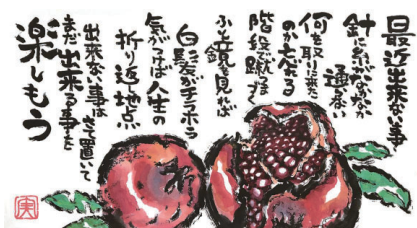 最近出来ない事
針に糸がなかなか
通らない
何を取りに来た
のか忘れる
階段で蹴つまずく
ふと鏡を見れば
白髪がチラホラ
気がつけば人生の
折り返し地点
出来ない事はさて置いて
まだ出来る事を
楽しもう
実